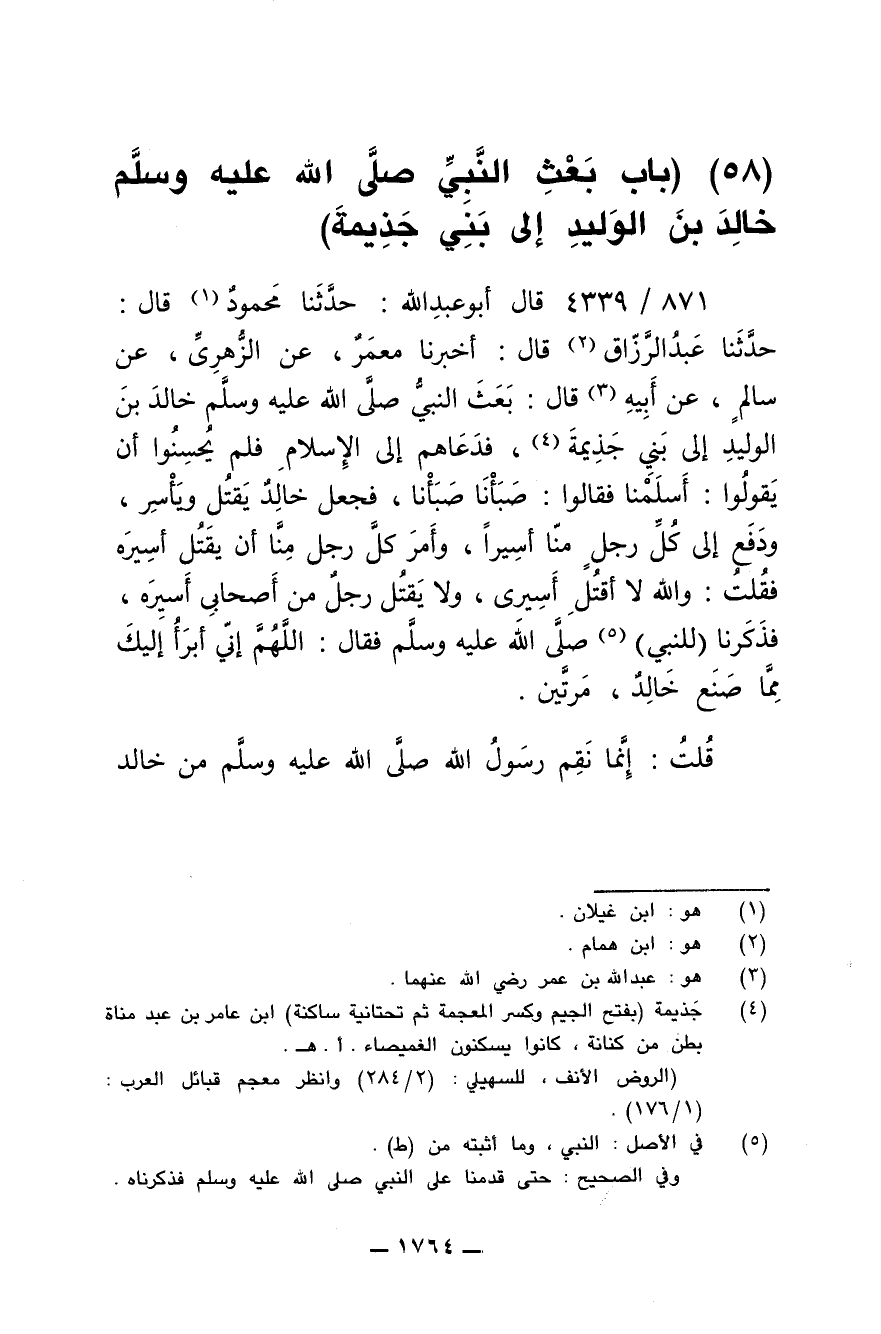 (٥٨) (باب بَعْثِ النَّبِيِّ صلَّى الله عليه وسلَّم
خالِدَ بنَ الوَليدِ إلى بَنِي جَذِيمةَ)
٨٧١ / ٤٣٣٩ قال أبوعبدِالله : حدَّثَنا مَحمودٌ (١) قال :
حدَّثَنا عَبدُالرَّزّاق (٢) قال : أخبرنا معمَرٌ ، عن الزُّهرِىِّ ، عن
سالمٍ ، عن أَبِيهِ (٣) قال : بَعَثَ النبيُّ صلَّى الله عليه وسلَّم خالدَ بنَ
الوليدِ إلى بَنِي جَذِيمةَ (٤) ، فدَعَاهم إلى الإِسلامِ فلم يُحسِنُوا أن
يَقولُوا : أَسلَمْنا فقالوا : صَبَأْنَا صَبَأْنا ، فجعل خالِدٌ يَقتُل ويَأْسِر ،
ودَفَع إلى كُلِّ رجلٍ منّا أسيراً ، وأَمرَ كلَّ رجل مِنَّا أن يقَتُل أسِيرَه
فقُلتُ : والله لا أقتُل أَسِيرى ، ولا يَقتُل رجلٌ من أصحابي أَسيرَه ،
فذَكَرنا (للنبي) (٥) صلَّى الله عليه وسلَّم فقال : اللَّهُمَّ إنّي أبرَأُ إليكَ
مِمَّا صَنَع خَالِدٌ ، مَرتَّين .
قُلتُ : إِنَّما نَقِم رسَولُ الله صلَّى الله عليه وسلَّم من خالد
(١) هو : ابن غيلان .
(٢) هو : ابن همام .
(٣) هو : عبدالله بن عمر رضي الله عنهما .
(٤) جَذيمة (بفتح الجيم وكسر المعجمة ثم تحتانية ساكنة) ابن عامر بن عبد مناة
بطن من كنانة ، كانوا يسكنون الغميصاء . أ . هـ .
(الروض الأنف ، للسهيلي : (٢/ ٢٨٤) وانظر معجم قبائل العرب :
(١/ ١٧٦) .
(٥) في الأصل : النبي ، وما أثبته من (ط) .
وفي الصحيح : حتى قدمنا على النبي صلى الله عليه وسلم فذكرناه .
ــ ١٧٦٤ ــ